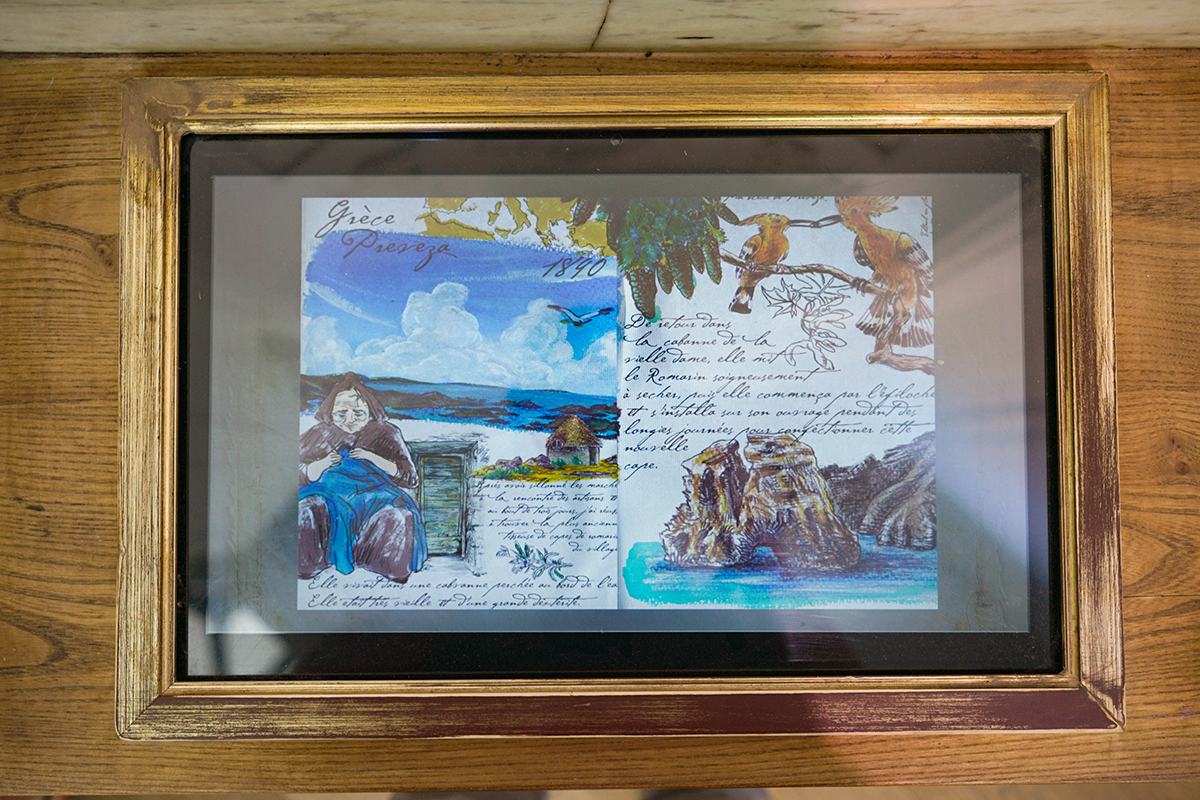 Grèce
Preveza
1890
Après avoir sillonné les marché
à la rencontre des artisans et
au bout de trois jours, j'ai réuss
à trouver la plus ancienn
tisseuse de capes de romarin
du villag
Elle vivait dans une cabvanne perchée au bord de l'ea
Elle était très vieille et d'une grande dextérité.
De retour dans
la cabanne de la
vielle dame, elle mit
le Romarin soigneusement
à secher, puis elle commença par l'éfiloche
et s'installa sur son ouvrage pendant des
longues journées pour confectionner cette
nouvelle
cape.